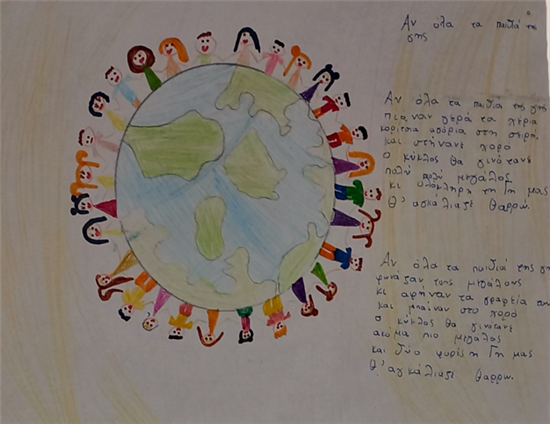 Αν όλα τα παιδιά της
γης
Αν όλα τα παιδιά της γης
πιάναν γερά τα χέρια
κορίτσια αγόρια στη σειρά
και στήνανε χορό
ο κύκλος θα γινότανε
πολύ πολύ μεγάλος
κι ολόκληρη τη Γη μας
θ' αγκάλιαζε θαρρώ.
Αν όλα τα παιδιά της γης
φωνάζαν τους μεγάλους
κι αφήναν τα γραφεία τους
και μπαίναν στο χορό
ο κύκλος θα γινότανε
ακόμα πιο μεγάλος
και δύο φορές τη Γη μας
θ' αγκάλιαζε θαρρώ.